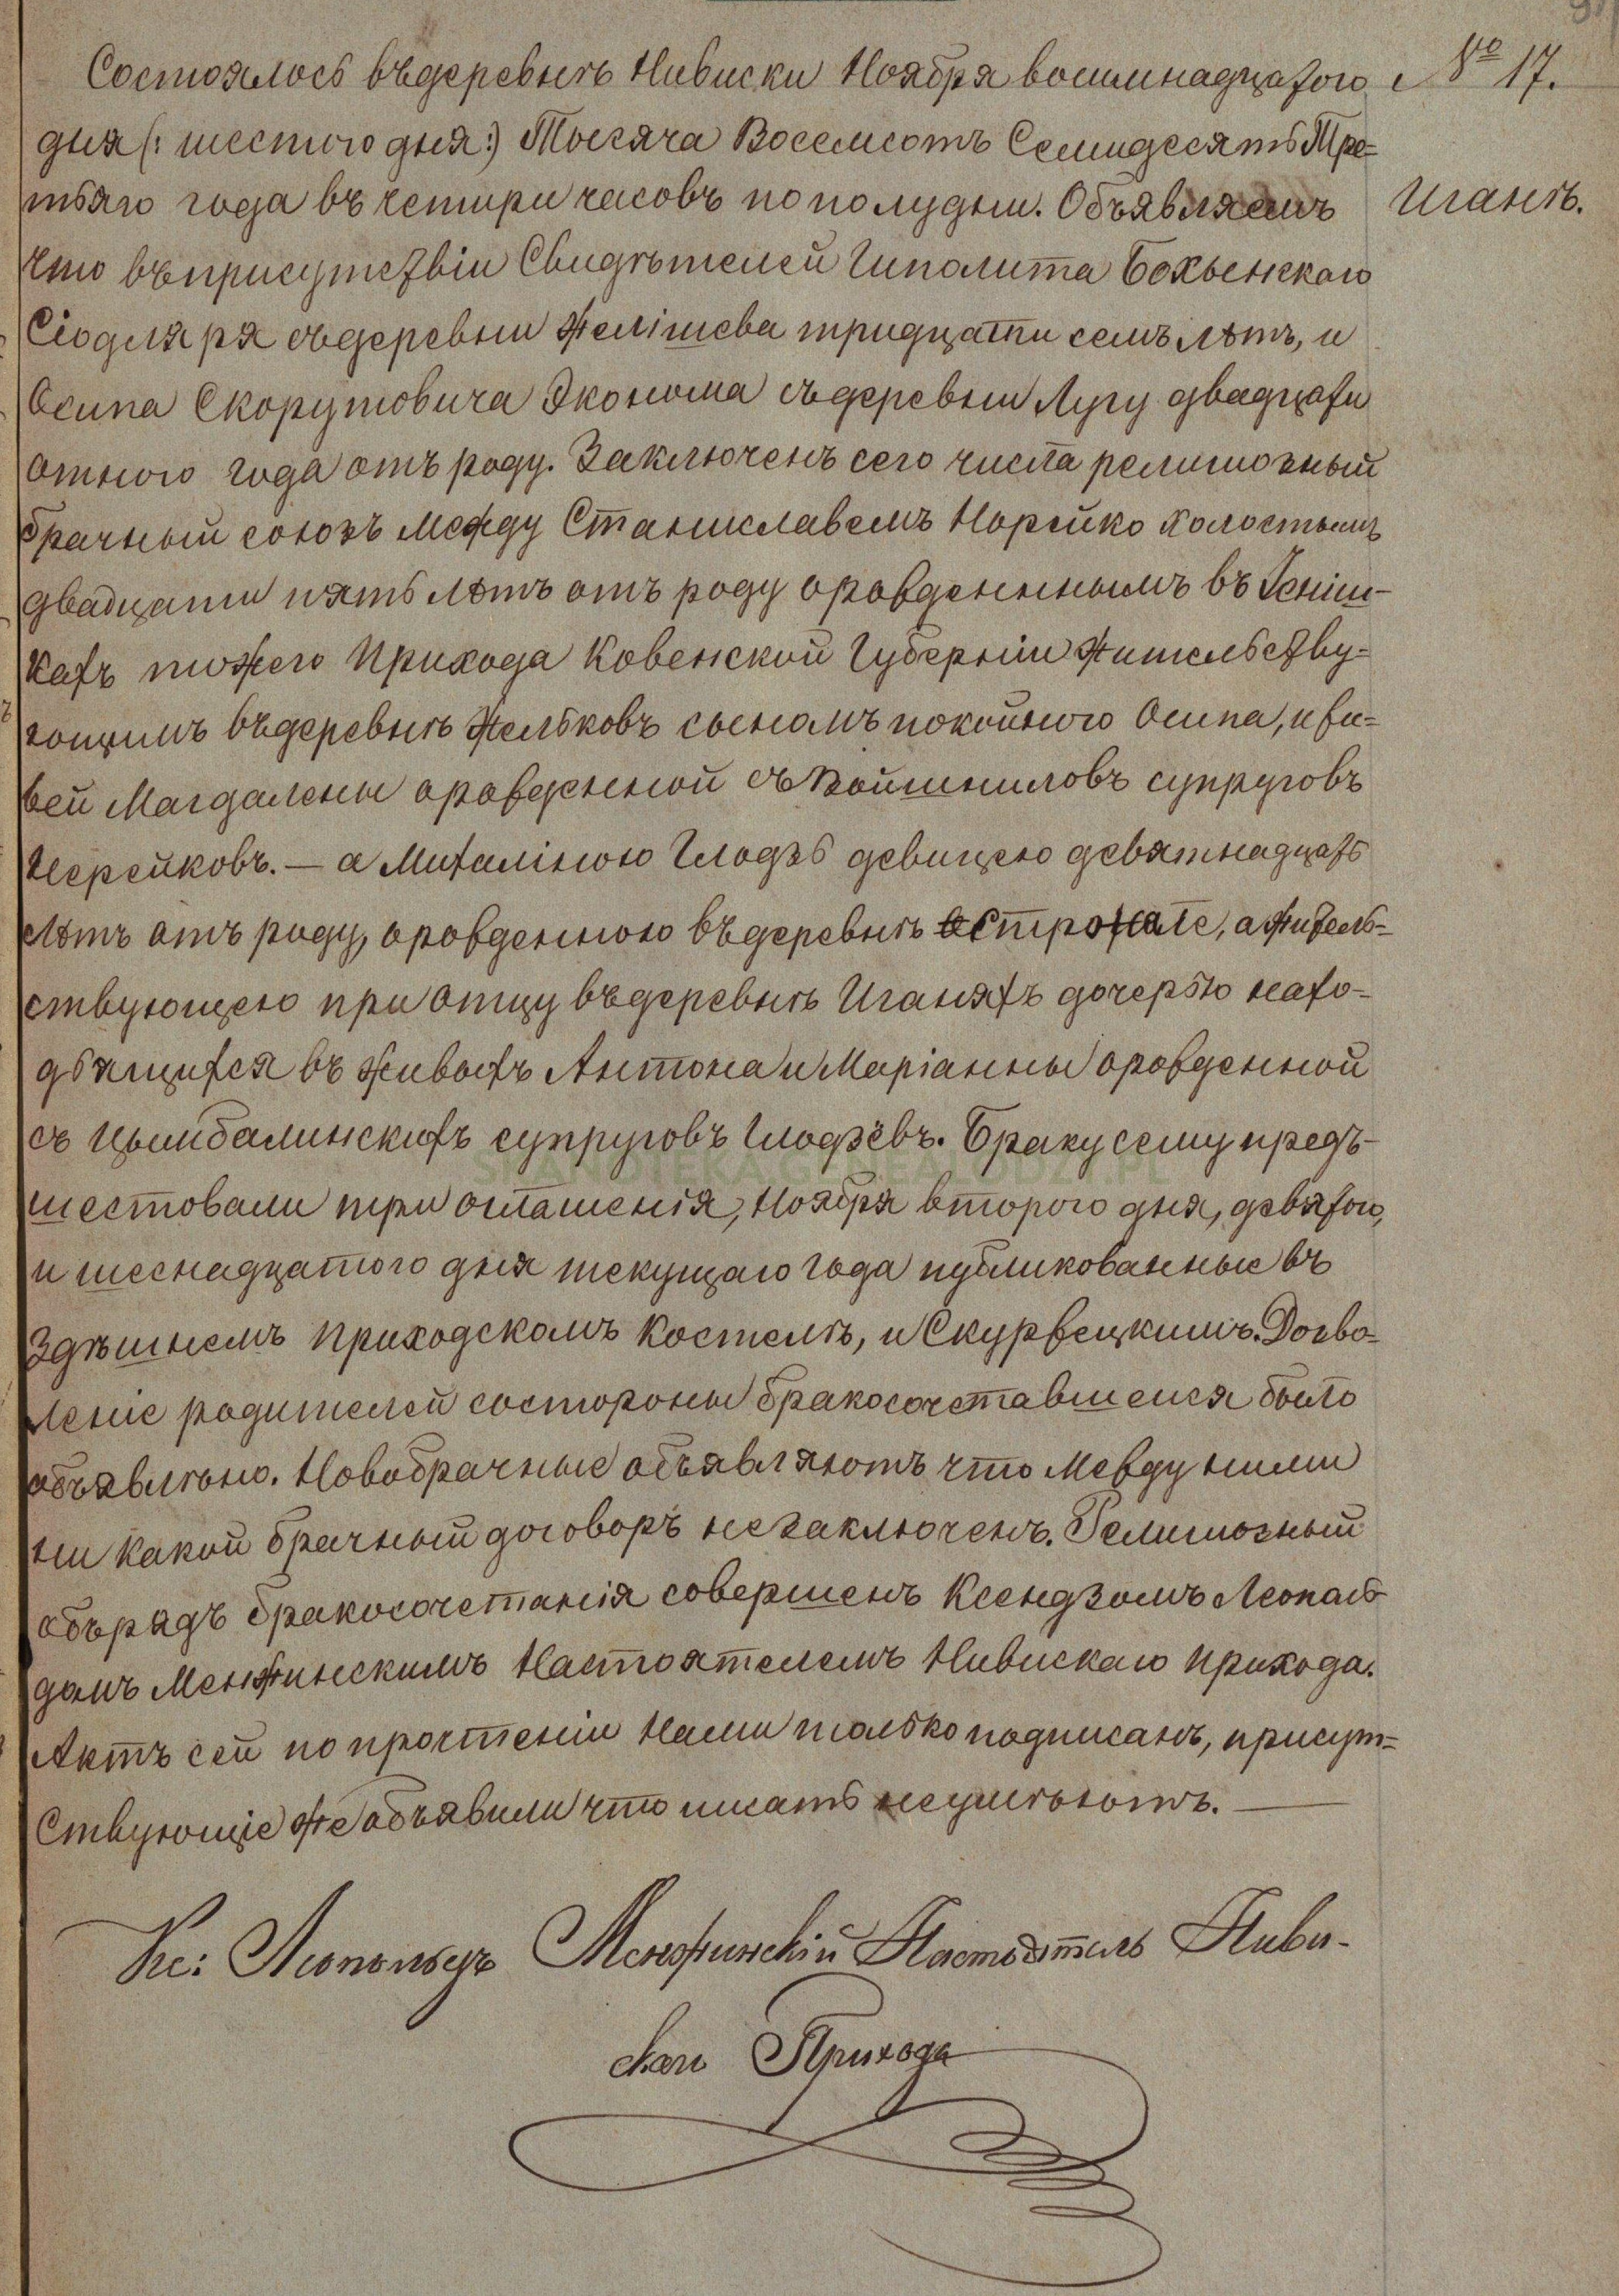 № 17.
Иганѣ.
Состоялось въ деревнѣ Нивиски Ноября восимнадцатого
дня (: шестого дня :) Тысяча Восемсотъ Семидесять Тре=
тьяго года въ четыри часовъ по полудни. Объявляемъ
что въ присутствіи Свидѣтелей Гиполита Бохьенского
Сіодляря съ деревни Желішева тридцати семъ лѣтъ, и
Осипа Скорутовича Эконома съ деревни Лугу двадцати
отного года отъ роду. Заключенъ сего числа религиозный
брачный союзъ Между Станиславемъ Норейко холостымъ
двадцати пять лѣтъ отъ роду оровденнымъ въ Іеніш-
кахъ тожего Прихода Ковенской Губерніи Жительству=
ющимъ въ деревнѣ Желбковъ сыномъ покойного Осипа, и ви=
вей Магдалены оровденной съ Войшниловъ супруговъ
Норейковъ. — а Михаліною Глодзь девицею девятнадцать
лѣтъ отъ роду, оровденною въ деревнѣ Острожале, а житель=
ствующею при отцу въ деревнѣ Иганяхъ дочерью нахо=
дьящихся въ живыхъ Антона и Маріанны оровденной
съ Цымбалинскихъ супруговъ Глодзёвъ. Браку сему предъ-
шествовали три оглашенія, Ноября второго дня, девятого,
и шеснадцатого дня текущаго года публикованные въ
Здѣшнемъ Приходскомъ Костелѣ, и Скурвецкимъ. Дозво=
леніе родителей состороны бракосочетавшейся было
объявлѣно. Новобрачные объявляютъ что Мевду ними
ни какой брачный договоръ незаключенъ. Религиозный
обърядъ бракосочетанія совершенъ Ксендзомъ Леополь-
домъ Менжинскимъ Настоятелемъ Нивискаго Прихода.
Актъ сей по прочтеніи Нами только подписанъ, присут=
ствующіе же объявили что писать неумѣютъ. —
Кс: Леопольдъ Менжинскій Настоятель Ниви-
скаго Прихода